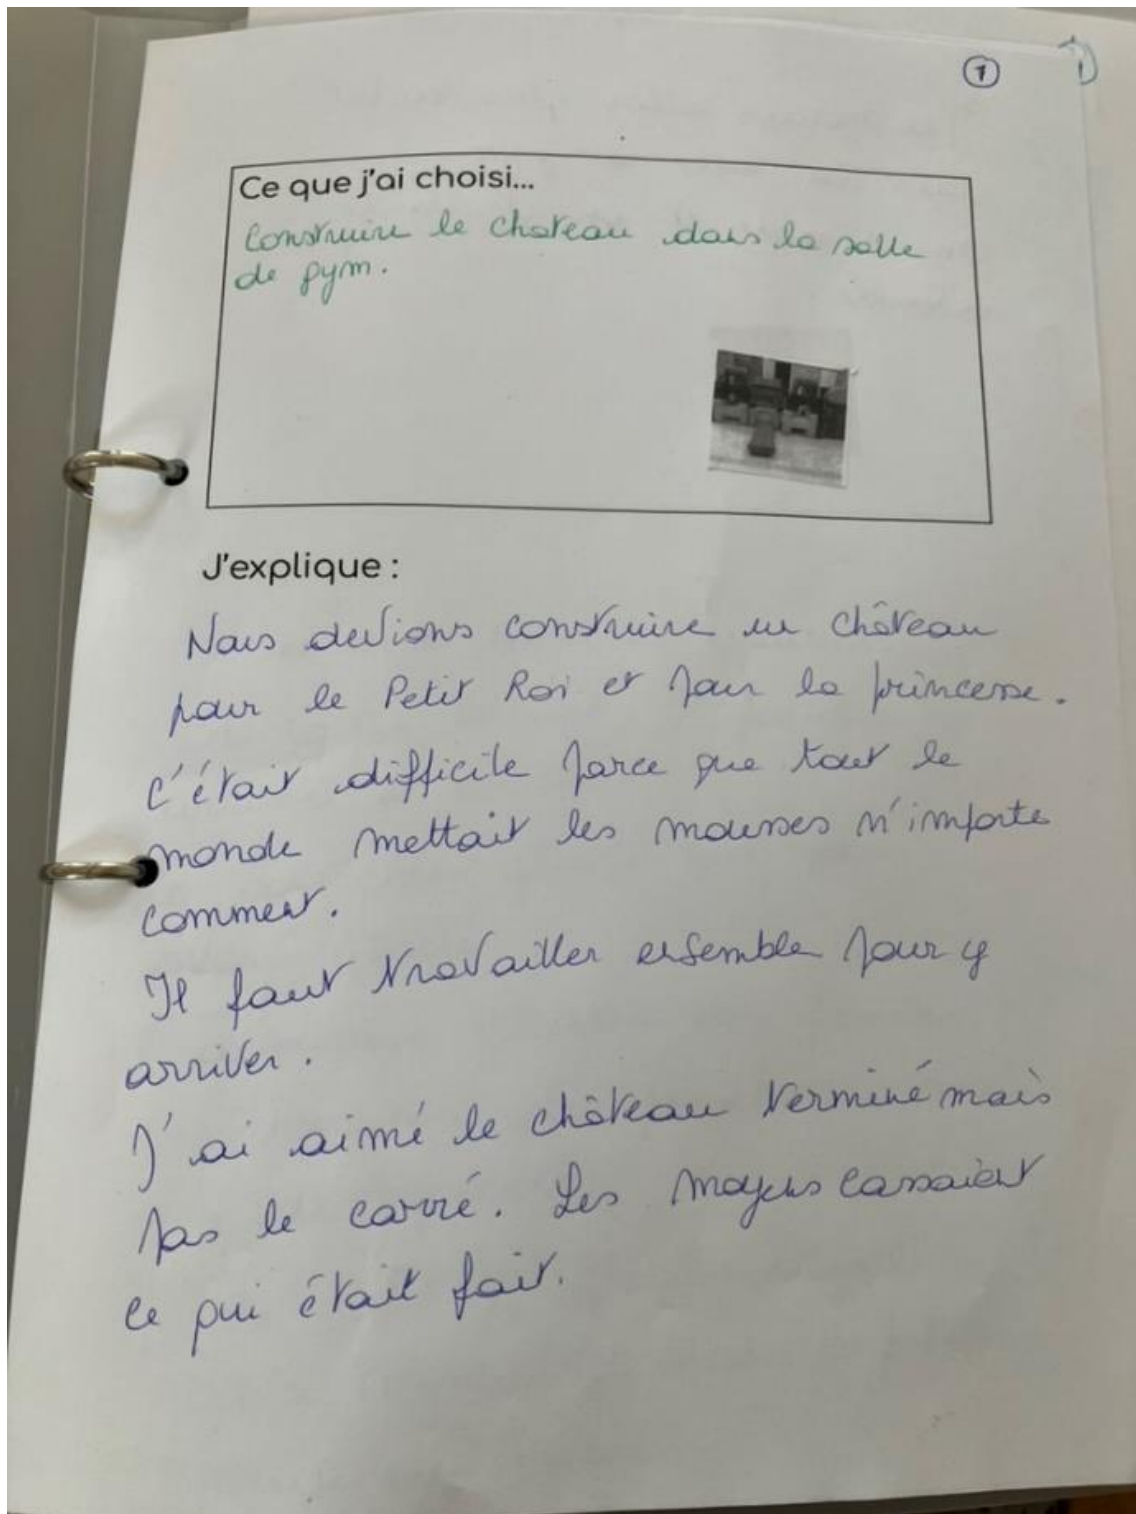 1
Ce que j'ai choisi...
Construire le chateau dans la salle
de gym.
J'explique :
Nous devions construire un château
pour le Petit Roi et pour la princesse.
C'était difficile parce que tout le
monde mettait les mousses n'importe
comment.
Il faut travailler ensemble pour y
arriver.
J'ai aimé le château terminé mais
pas le carré. Les moyens cassaient
ce qui était fait.